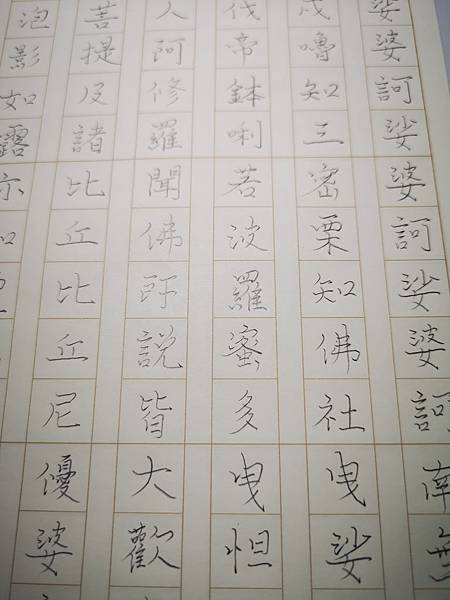 娑婆訶娑婆訶娑婆訶南無
戊嚕知三密栗知佛社曳娑
伐帝鉢唎若波羅蜜多曳怛
人阿修羅聞佛所說皆大歡
菩提及諸比丘比丘尼優婆
泡影如露亦如